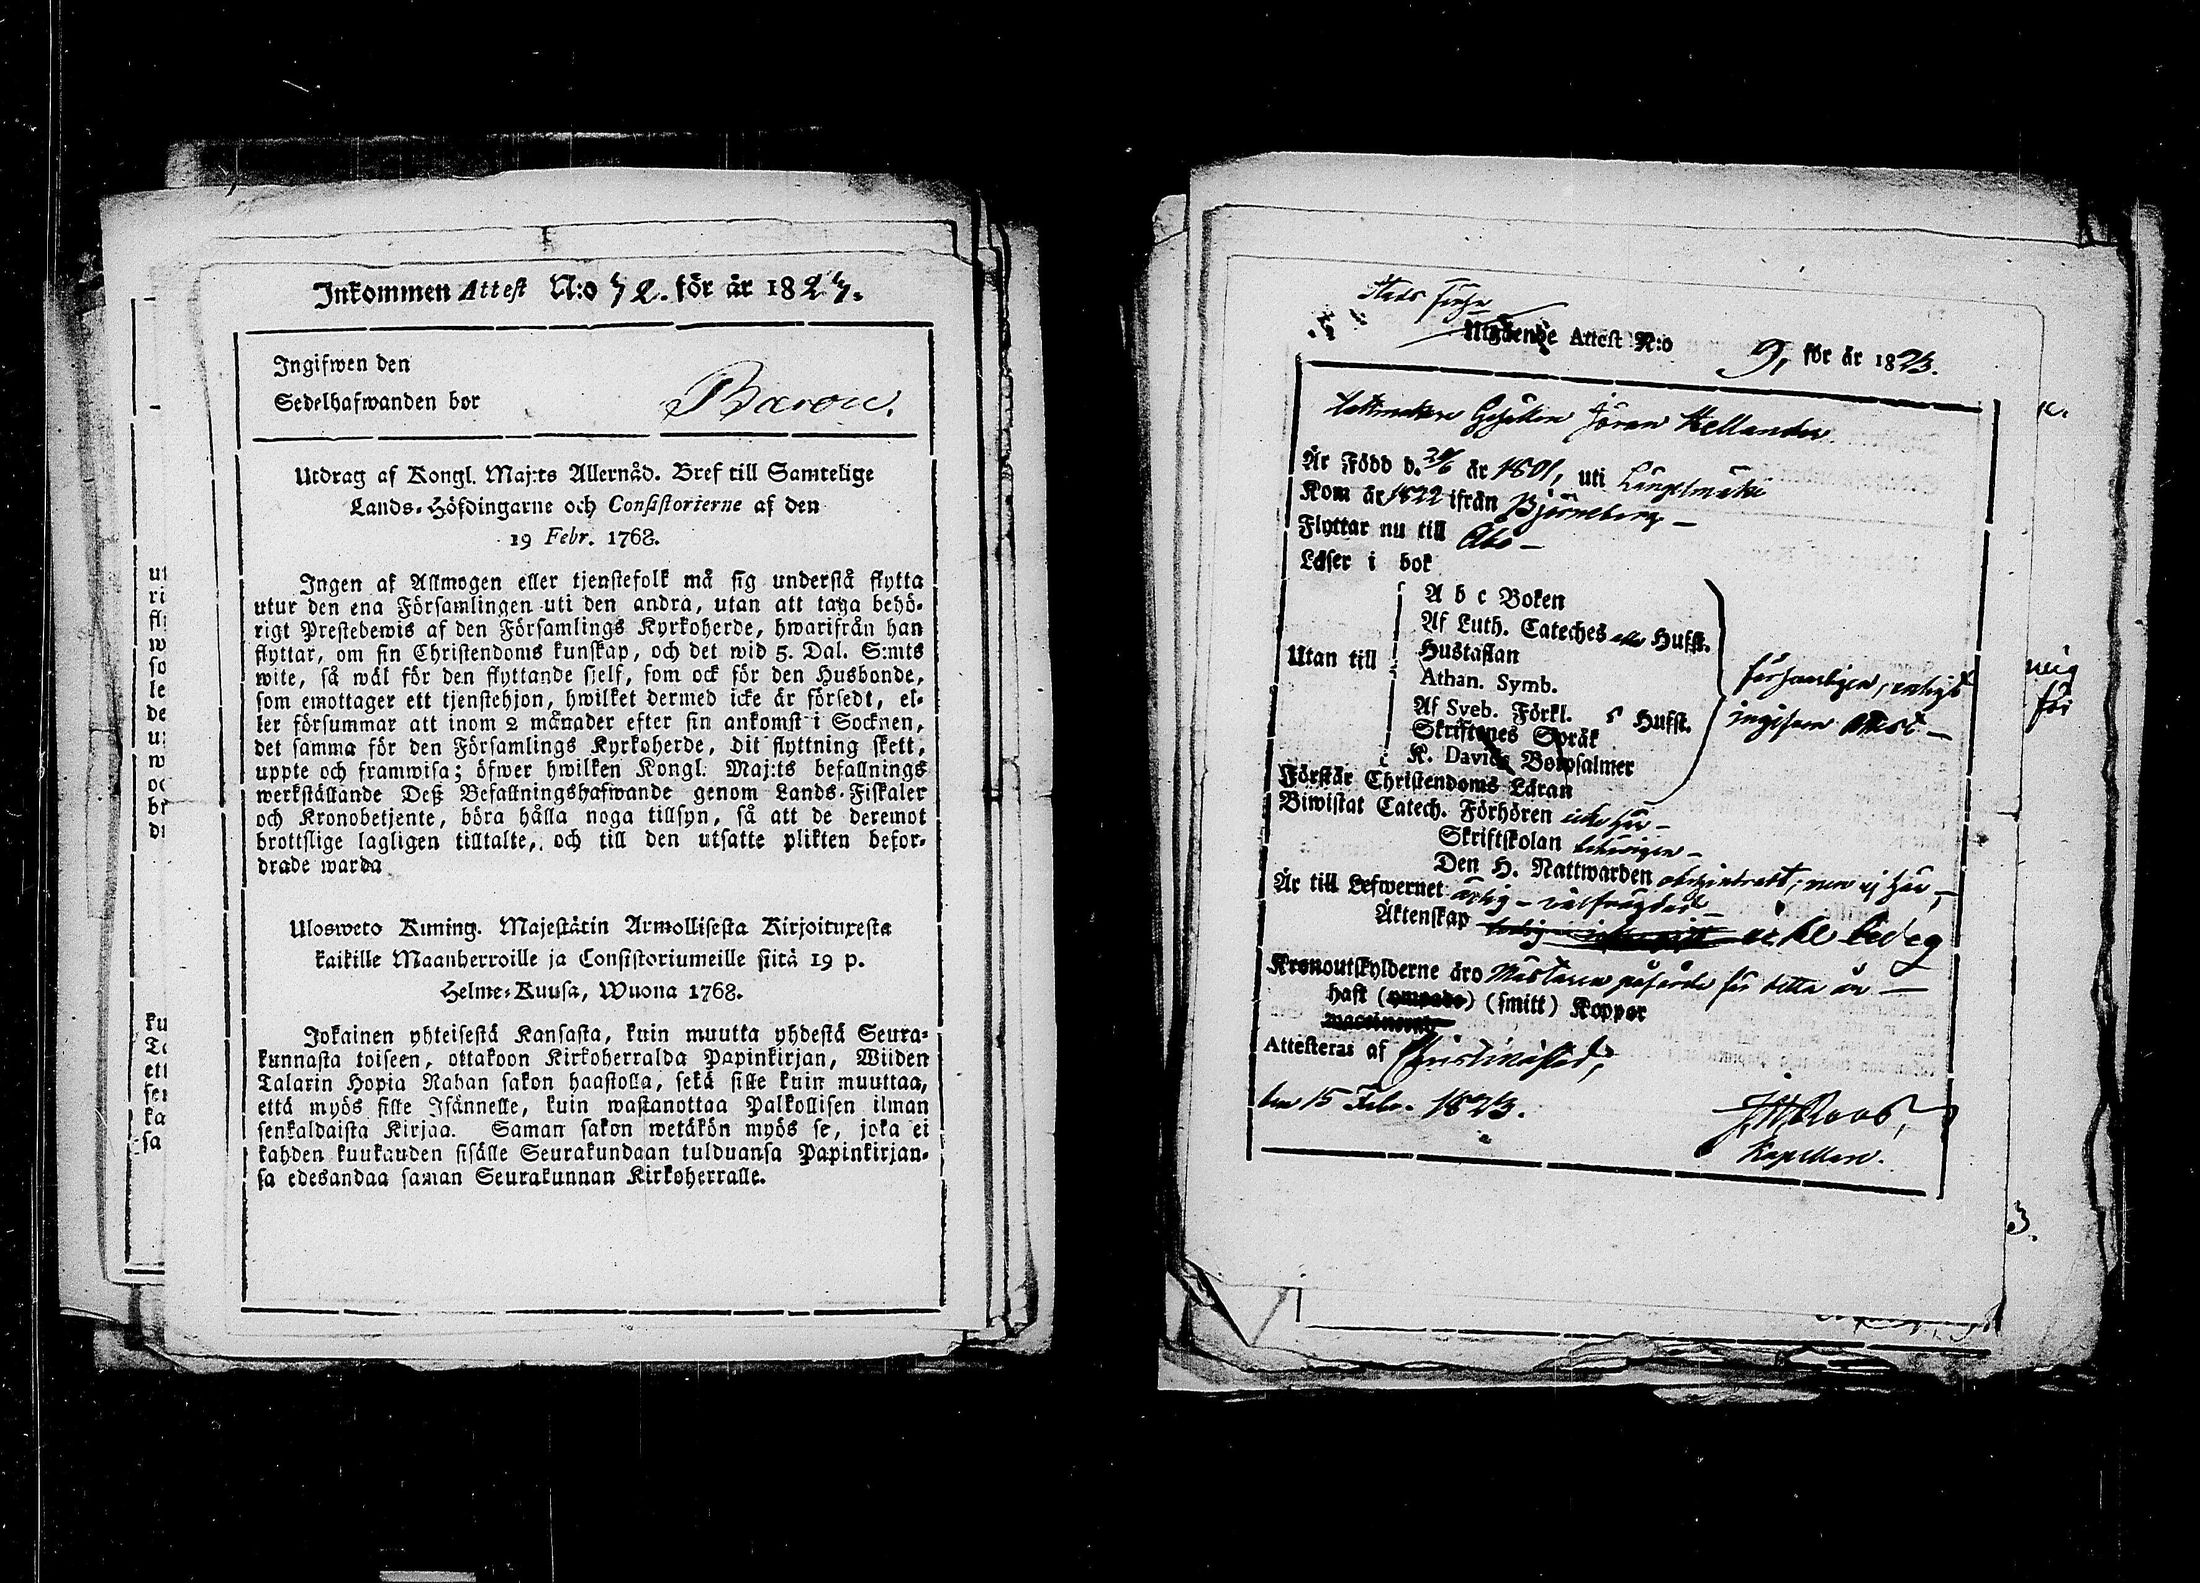 Inkommen Attest N:o 72. för år 1823.
Ingifwen den
Sedelhafwanden bor Baron.
Utdrag af Kongl. Maj:ts Allernåd. Bref till Samtelige
Lands-Höfdingarne och Consistorierne af den
19 Febr. 1768.
Ingen af Allmogen eller tjenstefolk må sig understå flytta
utur den ena Församlingen uti den andra, utan att taga behö-
rigt Prestebewis af den Församlings Kyrkoherde, hwarifrån han
flyttar, om sin Christendoms kunskap, och det wid 5. Dal. S:mts
wite, så wäl för den flyttande sjelf, som ock för den Husbonde,
som emottager ett tjenstehjon, hwilket dermed icke är försedt, el-
ler försummar att inom 2 månader efter sin ankomst i Socknen,
det samma för den Församlings Kyrkoherde, dit flyttning skett,
uppte och framwisa; öfwer hwilken Kongl. Maj:ts befallnings
werkställande Deß Befallningshafwande genom Lands-Fiskaler
och Kronobetjente, böra hålla noga tillsyn, så att de deremot
brottslige lagligen tilltalte, och till den utsatte plikten befor-
drade warda
Ulosweto Kuning. Majestätin Armollisesta Kirjoituxesta
kaikille Maanherroille ja Consistoriumeille siitä 19 p.
Helme-Kuusa, Wuona 1768.
Jokainen yhteisestä Kansasta, kuin muutta yhdestä Seura-
kunnasta toiseen, ottakoon Kirkoherralda Papinkirjan, Wiiden
Talarin Hopia Rahan sakon haastolla, sekä sille kuin muuttaa,
että myös sille Isännelle, kuin wastanottaa Palkollisen ilman
senkaldaista Kirjaa. Saman sakon wetäkön myös se, joka ei
kahden kuukauden sisälle Seurakundaan tulduansa Papinkirjan-
sa edesandaa saman Seurakunnan Kirkoherralle.
Utgående Attest N:o 9, för år 1823.
Gesällen Jöran Hellander
Är Född d. 24/6 år 1801, uti Längelmäki
Kom år 1822 ifrån Björneborg –
Flyttar nu till Åbo –
Läser i bok
Utan till
A b c Boken
Af Luth. Cateches eller Husst.
Hustaflan
Athan. Symb.
Af Sveb. Förkl. s Husst.
Skriftenes Språk
K. Davids Botpsalmer
försvarligen, enligt
ingifven Attest –
Förstår Christendoms Läran
Biwistat Catech. Förhören icke här –
Skriftskolan behörigen –
Den H. Nattwarden obehindradt, men ej här, –
Är till Lefwernet ärlig – välfrägdad –
Äktenskap ledig icke ledig
Kronoutskylderne äro Mästaren påförde för detta år –
haft (ympade) (smitt) Koppor
vaccinerat
Attesteras af Christinæstad,
den 15 Febr. 1823.
Roos,
Kapellan.